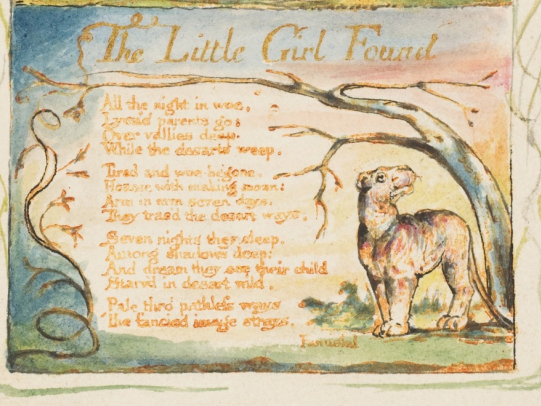 The Little Girl Found
All the night in woe,
Lyca's parents go:
Over vallies deep.
While the desarts weep.
Tired and woe-begone,
Hoarse with making moan:
Arm in arm seven days,
They trac'd the desart ways.
Seven nights they sleep,
Among shadows deep:
And dream they see their child
Starv'd in desart wild.
Pale thro pathless ways
The fancied image strays,